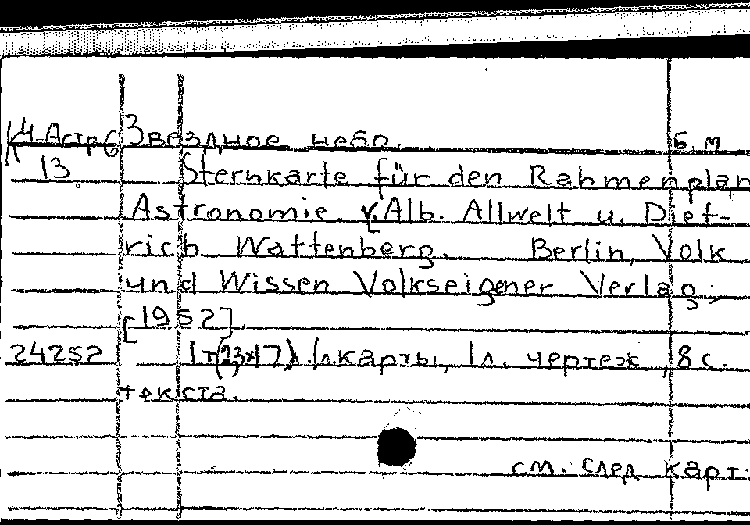 14-Астр6 Звездное небо. Б.м
Л 13 Sternkarte für den Rahmenplan
Astronomie v. Alb. Allwelt u. Diet-
rich Wattenberg. Berlin, Volk
und Wissen Volkseigener Verlag,
[1952].
24252 1 л. карты, 1 л. чертеж, 8 с.
текста.
см. след карт.